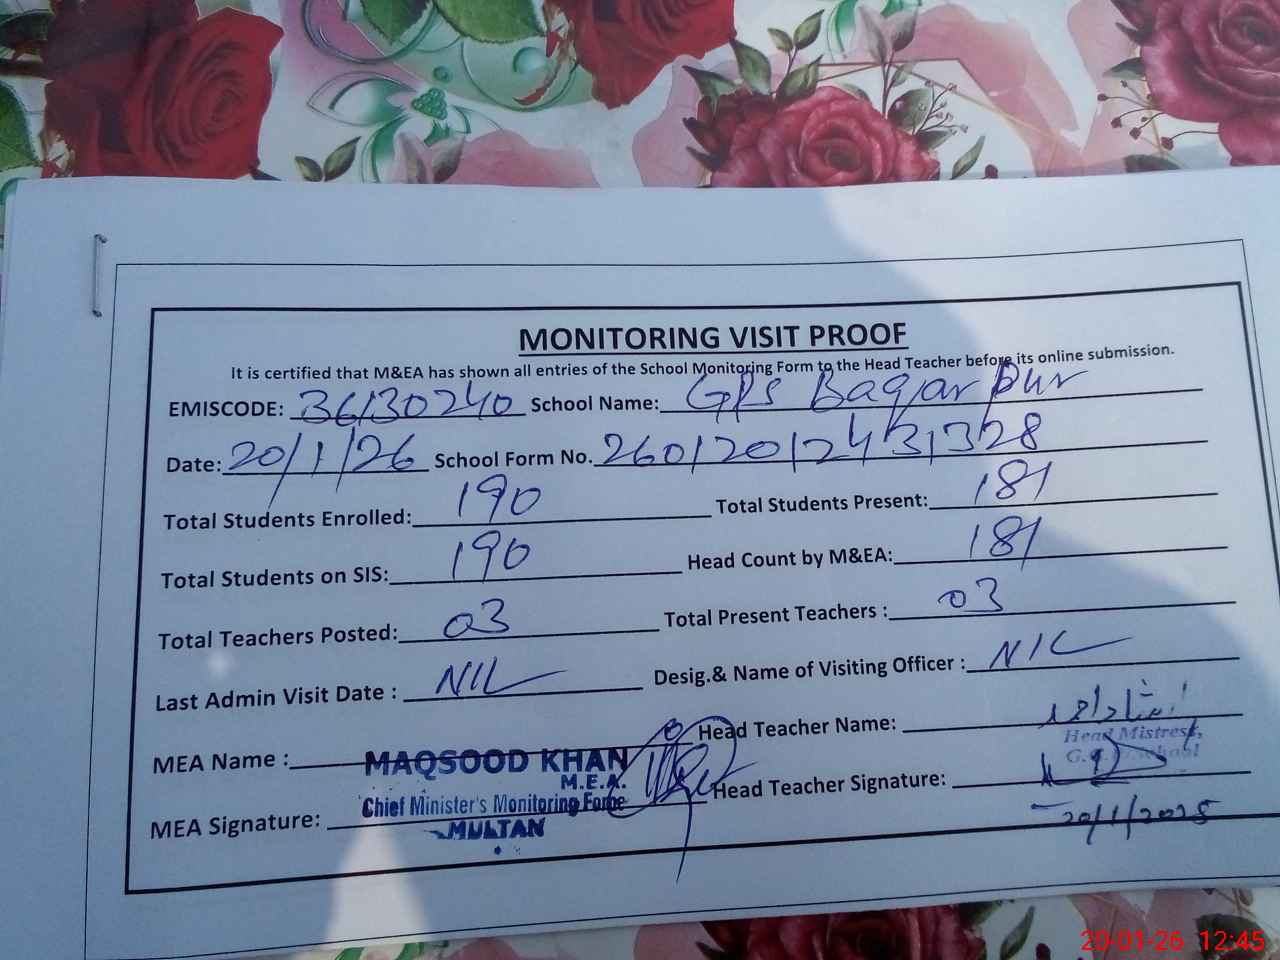 MONITORING VISIT PROOF
It is certified that M&EA has shown all entries of the School Monitoring Form to the Head Teacher before its online submission.
EMISCODE: 36130240 School Name: GPS Baqar pur
Date: 20/1/26 School Form No. 26012012431328
Total Students Enrolled: 190 Total Students Present: 181
Total Students on SIS: 190 Head Count by M&EA: 181
Total Teachers Posted: 03 Total Present Teachers : 03
Last Admin Visit Date : NIL Desig.& Name of Visiting Officer : NIL
MEA Name : MAQSOOD KHAN Head Teacher Name:
M.E.A.
Head Mistress,
MEA Signature: Chief Minister's Monitoring Force Head Teacher Signature:
MULTAN
20/1/2025
20-01-26 12:45